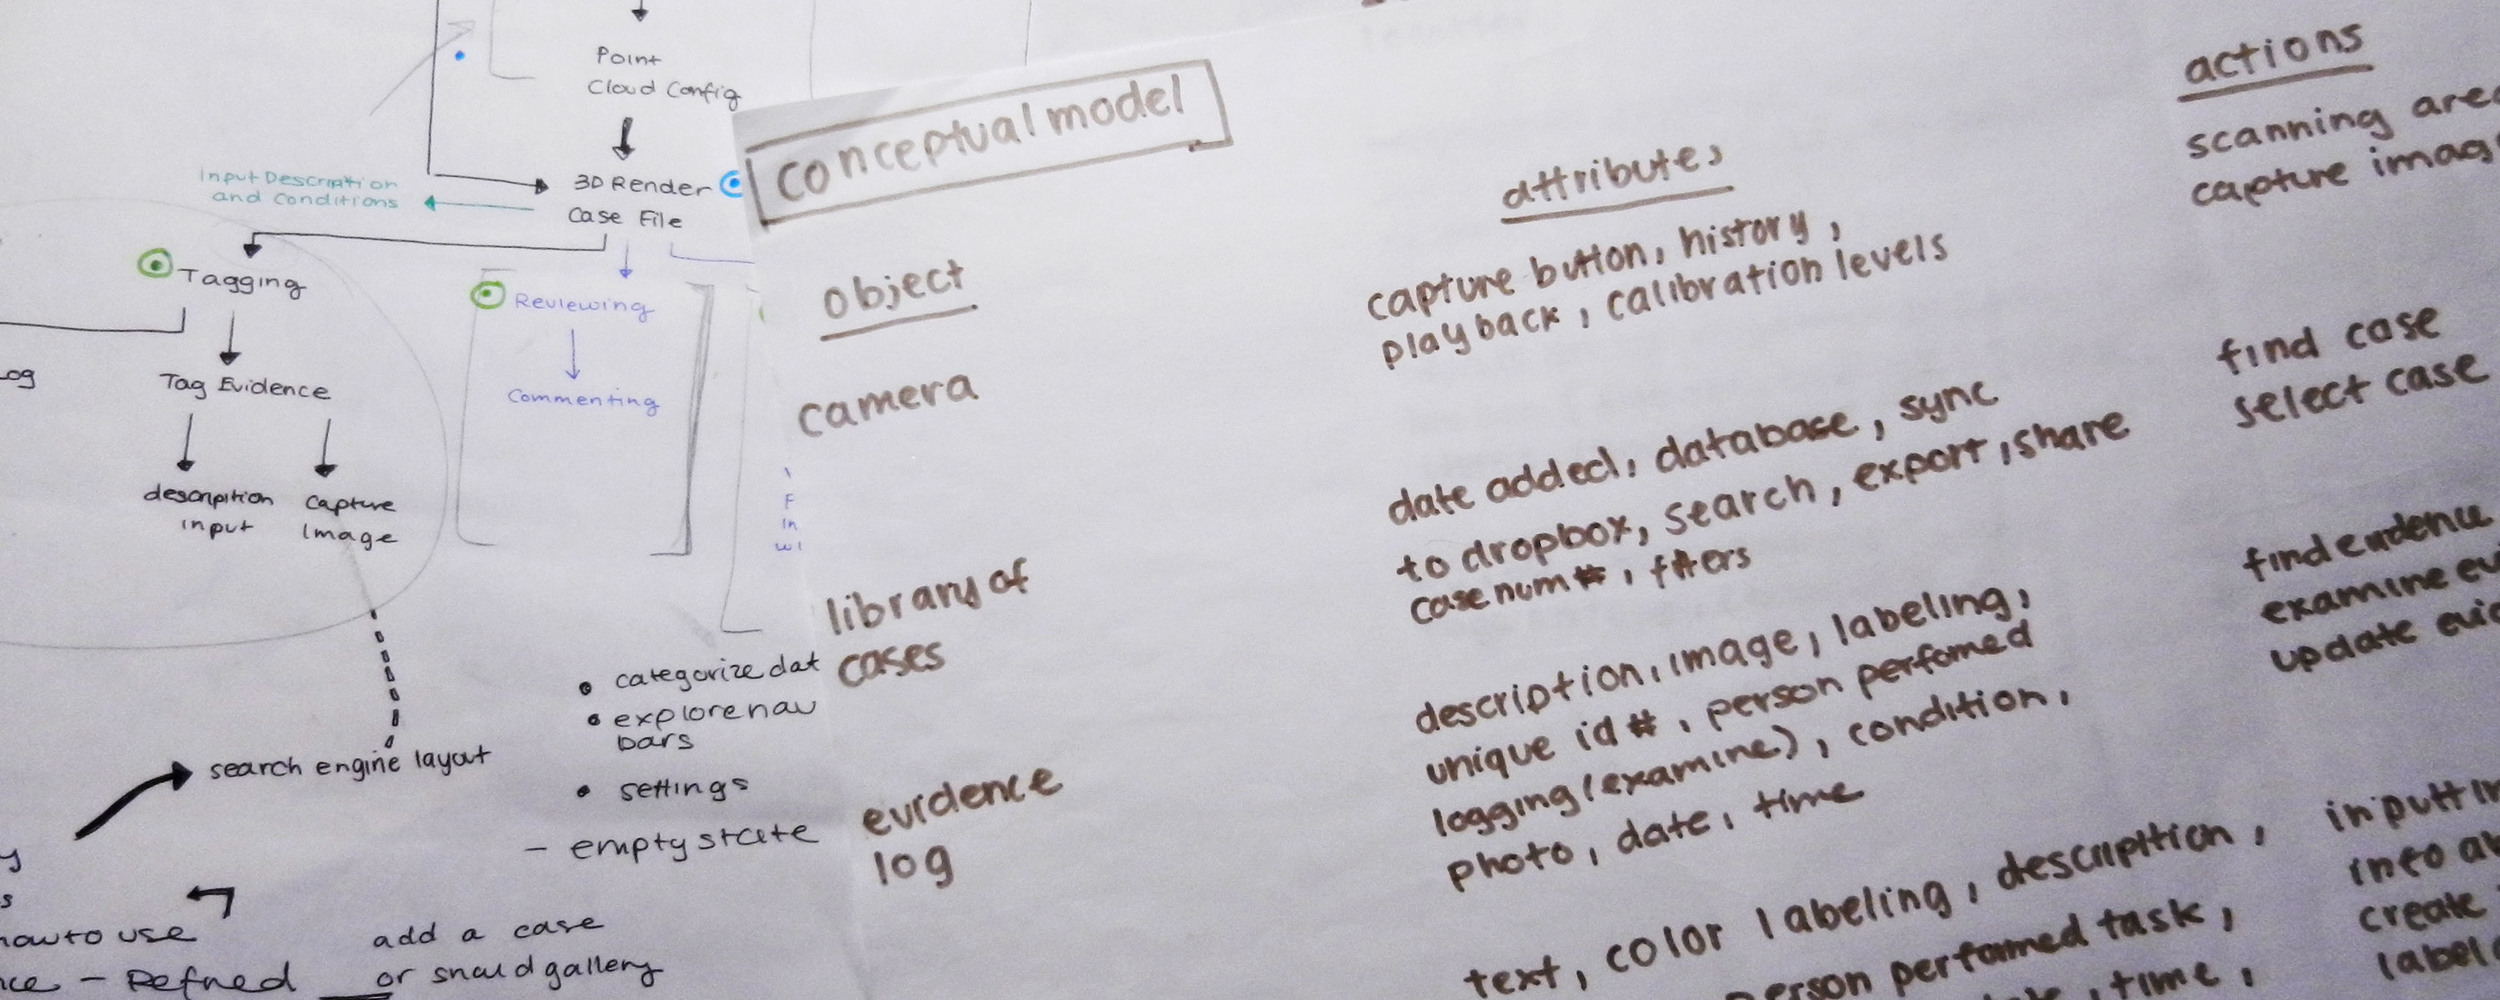 Point
Cloud Config
3D Render
Case File
Input Description
and Conditions
Tagging
Tag Evidence
description
input
Capture
Image
Reviewing
Commenting
search engine layout
• categorize dat
• explore nav
bars
• settings
- empty state
how to use
- Refined
add a case
or
gallery
conceptual model
object
attributes
actions
camera
capture button, history,
playback, calibration levels
scanning area
capture imag
library of
cases
date added, database, sync
to dropbox, search, export, share
case num #, filters
find case
select case
evidence
log
description, image, labeling,
unique id #, person perfomed
logging (examine), condition,
photo, date, time
find evidence
examine evi
update evid
text, color labeling, description,
person performed task,
, time,
inputtin
into
create
label